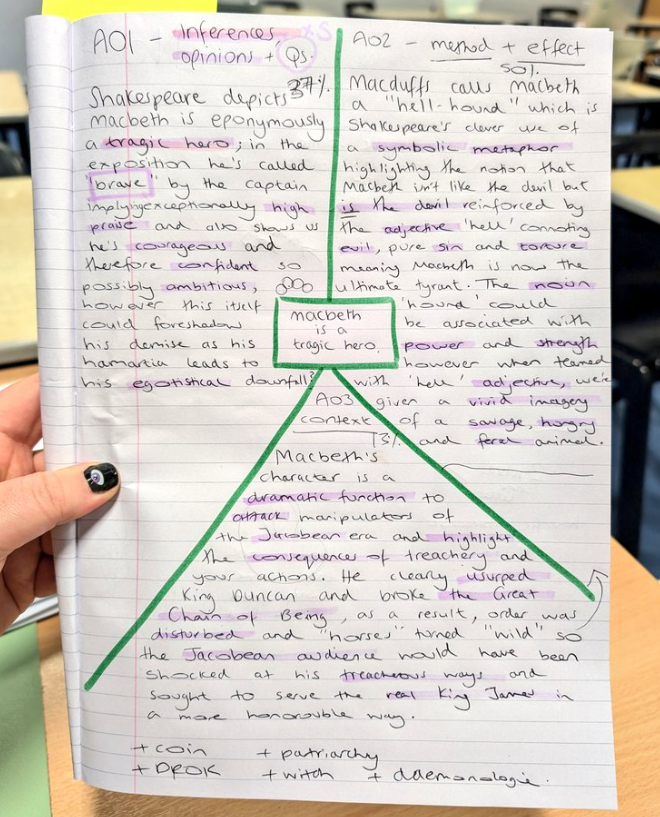 AO1 - Inferences + S
opinions + Qs.
37%
Shakespeare depicts
macbeth is eponymously
a tragic hero; in the
exposition he's called
"brave" by the captain
implying exceptionally high
praise and also shows us
he's courageous and
therefore confident so
possibly ambitious,
however this itself
could foreshadow
his demise as his
hamartia leads to
his egotistical downfall?
AO2 - method + effect
50%
Macduffs calls macbeth
a "hell-hound" which is
Shakespeare's clever use of
a symbolic metaphor
highlighting the notion that
Macbeth isn't like the devil but
is the devil reinforced by
the adjective 'hell' connoting
evil, pure sin and torture
meaning Macbeth is now the
ultimate tyrant. The noun
'hound' could
be associated with
power and strength
however when teamed
with 'hell' adjective, we're
given a vivid imagery
of a savage, hungry
and feral animal.
macbeth
is a
tragic hero.
AO3
context
13%
Macbeth's
character is a
dramatic function to
attack manipulators of
the Jacobean era and highlight
the consequences of treachery and
your actions. He clearly usurped
King Duncan and broke the Great
Chain of Being, as a result, order was
disturbed and "horses" turned "wild" so
the Jacobean audience would have been
shocked at his treacherous ways and
sought to serve the real King James in
a more honorouble way.
+ coin + patriarchy
+ DROK + witch + daemonologie.